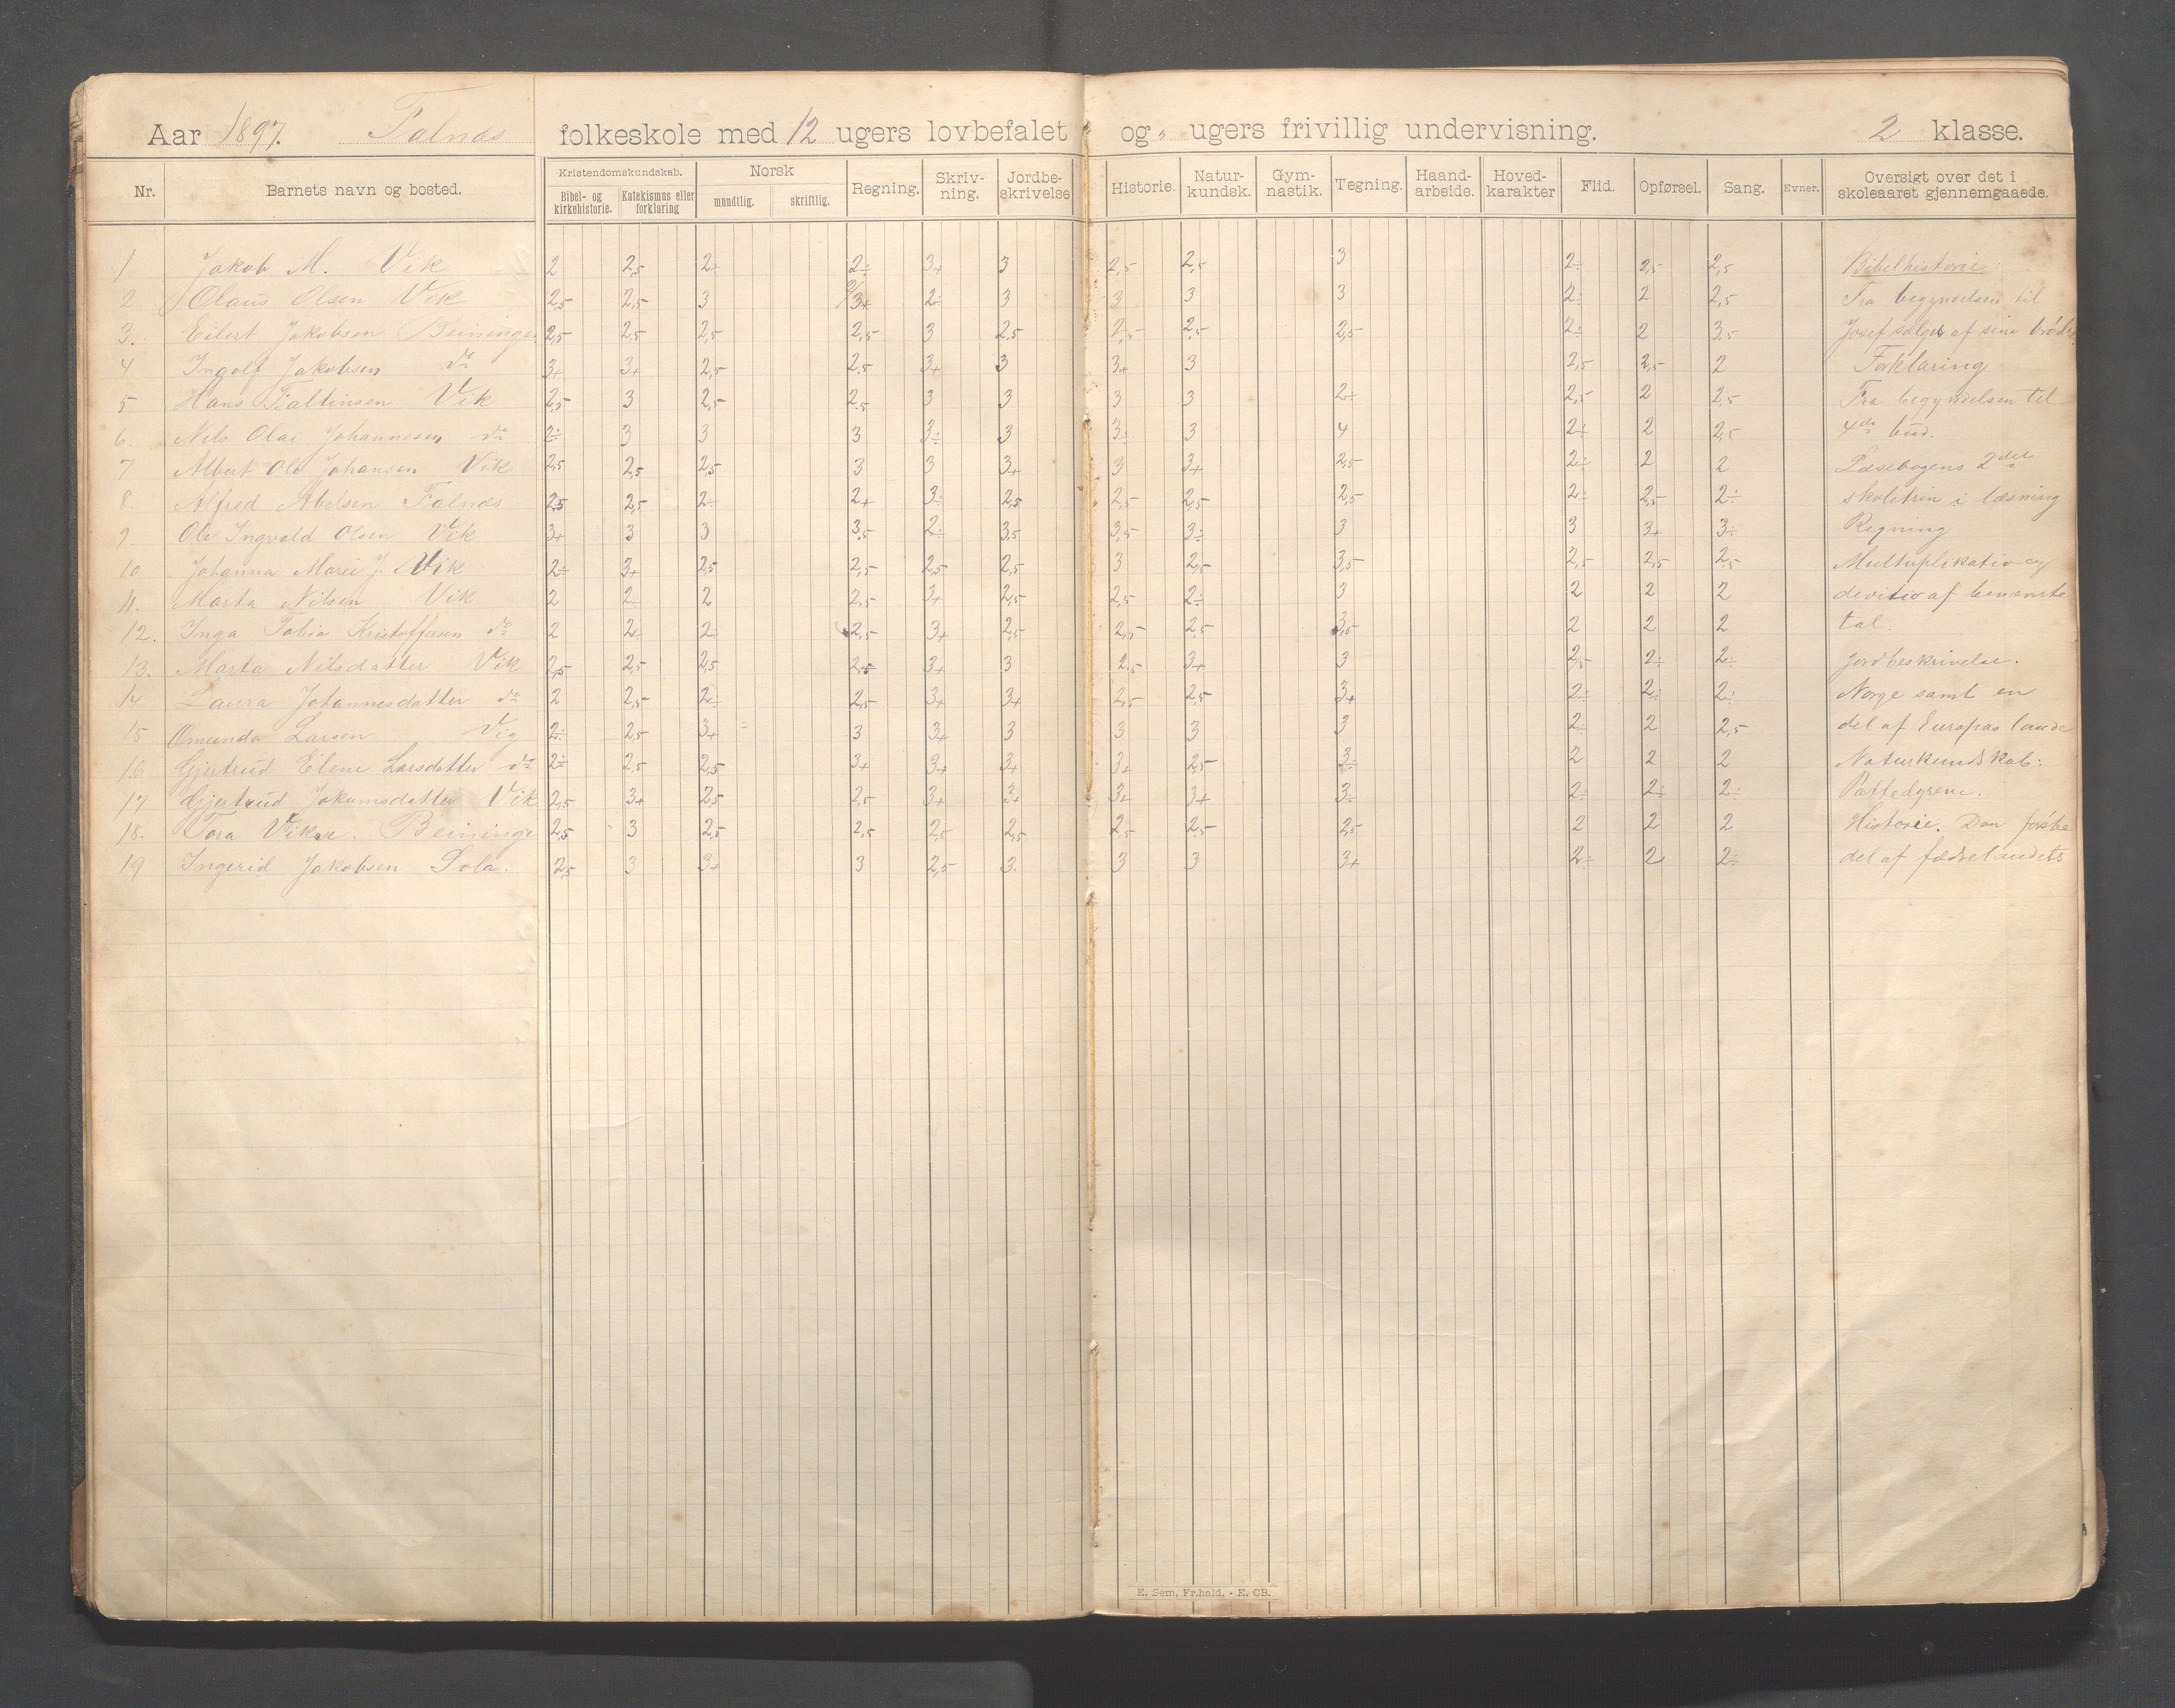 Aar 1897. Falnæs folkeskole med 12 ugers lovbefalet og " ugers frivillig undervisning. 2 klasse.
Nr. Barnets navn og bosted. Kristendomskundskab. Bibel- og kirkehistorie. Katekismus eller forklaring Norsk mundtlig. skriftlig. Regning. Skriv-ning. Jordbe-skrivelse Historie. Natur-kundsk. Gym-nastik. Tegning. Haand-arbeide. Hoved-karakter Flid. Opførsel. Sang. Evner. Oversigt over det i skoleaaret gjennemgaaede.
1. Jakob M. Vik 2 2,5 2÷ 2÷ 3+ 3 2,5 2,5 3 2÷ 2,5 2,5 Bibelhistorie
2. Olaus Olsen Vik 2,5 2,5 3 3+ 2÷ 3 3 3 3 2÷ 2 2,5 Fra begyndelsen til
3. Eilert Jakobsen Beininge 2,5 2,5 2,5 2,5 3 2,5 2,5 2,5 2,5 2÷ 2 3,5 Josef sælges af sine brødre
4 Ingolf Jakobsen do 3+ 3+ 2,5 2,5 3+ 3 3+ 3 2,5 2,5 2 Forklaring
5 Hans Faltinsen Vik 2,5 3 2,5 2,5 3 3 3 3 2÷ 2,5 2 2,5 Fra begyndelsen til
6. Nils Olai Johannesen do 2÷ 3 3 3 3÷ 3 3÷ 3 4 2÷ 2 2,5 4de bud.
7 Albert Ole Johansen Vik 2,5 2,5 2,5 3 3 3+ 3 3+ 2,5 2÷ 2 2 Læsebogens 2det
8. Alfred Abelsen Falnæs 2,5 2,5 2÷ 2+ 3÷ 2,5 2,5 2,5 2,5 2÷ 2,5 2÷ skoletrin i læsning
9. Ole Ingvald Olsen Vik 3+ 3 3 3,5 2÷ 3,5 3,5 3÷ 3 3 3+ 3÷ Regning
10. Johanna Marie J. Vik 2÷ 3+ 2,5 2,5 2,5 2,5 3 2,5 3,5 2,5 2,5 2,5 Multuplikatio og
11. Marta Nilsen Vik 2 2÷ 2 2,5 3+ 2,5 2,5 2÷ 3 2 2 2 devitio af benævnte
12. Inga Tobia Kristoffersen do 2 2÷ 2÷ 2,5 3+ 2,5 2,5 2,5 3,5 2 2 2 tal.
13. Marta Nilsdatter Vik 2,5 2,5 2,5 2,5 3+ 3 2,5 3+ 3 2,5 2÷ 2÷ Jordbeskrivelse.
14 Laura Johannesdatter do 2 2,5 2÷ 2,5 3+ 3+ 2,5 2,5 3+ 2÷ 2÷ 2÷ Norge samt en
15 Omunda Larsen Vig 2÷ 2,5 3+ ÷ 3 3+ 3 3 3 3 2÷ 2 2,5 del af Europas lande
16 Gjertrud Elene Larsdatter do 2÷ 2,5 2,5 3+ 3+ 3+ 3+ 2,5 3÷ 2 2 2 Naturkundskab:
17 Gjertrud Jakumsdatter Vik 2,5 3+ 2,5 2,5 3+ 3+ 3+ 3+ 3÷ 2÷ 2÷ 2÷ Pattedyrene.
18. Tora Vikse. Beininge 2,5 3 2,5 2,5 2,5 2,5 2,5 2,5 2,5 2 2 2 Historie. Den første
19 Ingerid Jakobsen Sola. 2,5 3 3+ 3 2,5 3. 3 3 3+ 2÷ 2 2÷ del af fædrelandets
E. Sem, Fr.hald. - E. CB.